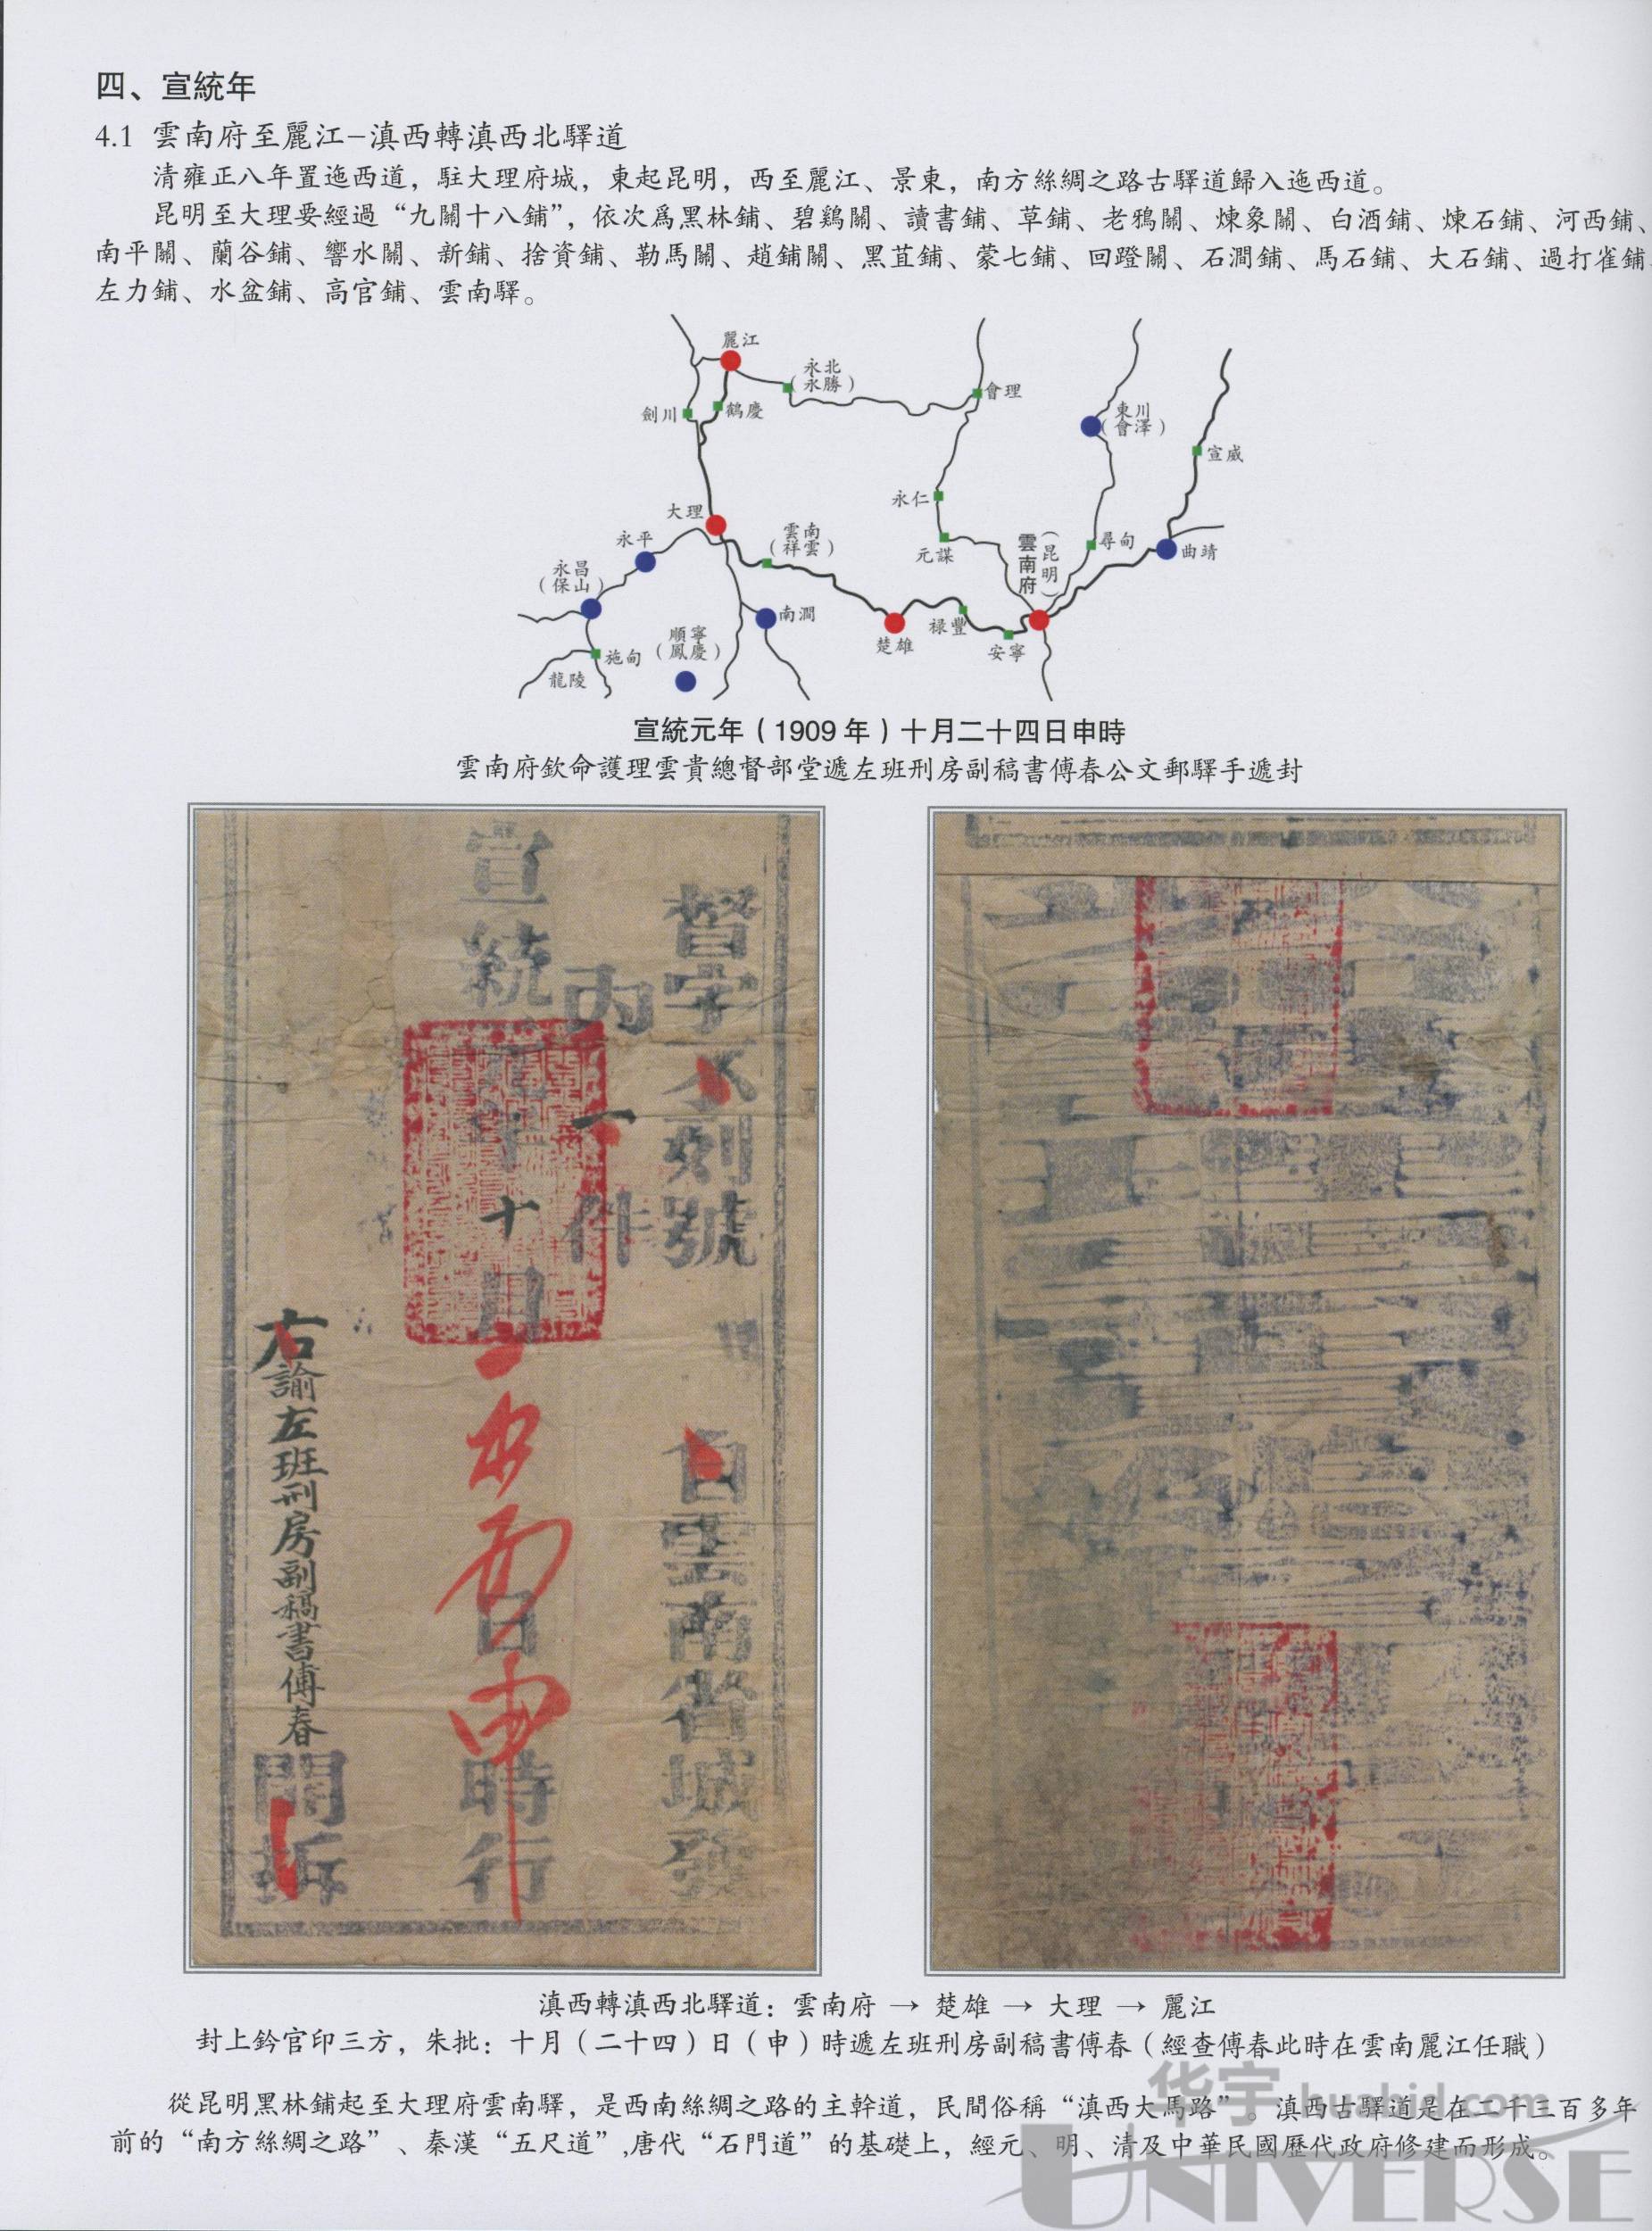 四、宣統年
4.1 雲南府至麗江–滇西轉滇西北驛道
清雍正八年置迤西道，駐大理府城，東起昆明，西至麗江、景東，南方絲綢之路古驛道歸入迤西道。
昆明至大理要經過“九關十八鋪”，依次爲黑林鋪、碧鷄關、讀書鋪、草鋪、老鴉關、煉象關、白酒鋪、煉石鋪、河西鋪、
南平關、蘭谷鋪、響水關、新鋪、捨資鋪、勒馬關、趙鋪關、黑苴鋪、蒙七鋪、回蹬關、石澗鋪、馬石鋪、大石鋪、過打雀鋪、
左力鋪、水盆鋪、高官鋪、雲南驛。
麗江
永北
（永勝）
會理
劍川
鶴慶
東川
（會澤）
宣威
永仁
大理
永平
雲南
（祥雲）
元謀
雲南府
（昆明）
尋甸
曲靖
永昌
（保山）
南澗
順寧
（鳳慶）
楚雄
禄豐
安寧
施甸
龍陵
宣統元年（1909 年）十月二十四日申時
雲南府欽命護理雲貴總督部堂遞左班刑房副稿書傅春公文郵驛手遞封
督字不列號
自雲南省城發
內一件
宣統元年十月
日申時行
右諭左班刑房副稿書傅春
開拆
滇西轉滇西北驛道：雲南府 → 楚雄 → 大理 → 麗江
封上鈐官印三方，朱批：十月（二十四）日（申）時遞左班刑房副稿書傅春（經查傅春此時在雲南麗江任職）
從昆明黑林鋪起至大理府雲南驛，是西南絲綢之路的主幹道，民間俗稱“滇西大馬路”。滇西古驛道是在二千三百多年
前的“南方絲綢之路”、秦漢“五尺道”,唐代“石門道”的基礎上，經元、明、清及中華民國歷代政府修建而形成。
华宇 huabid.com
UNIVERSE